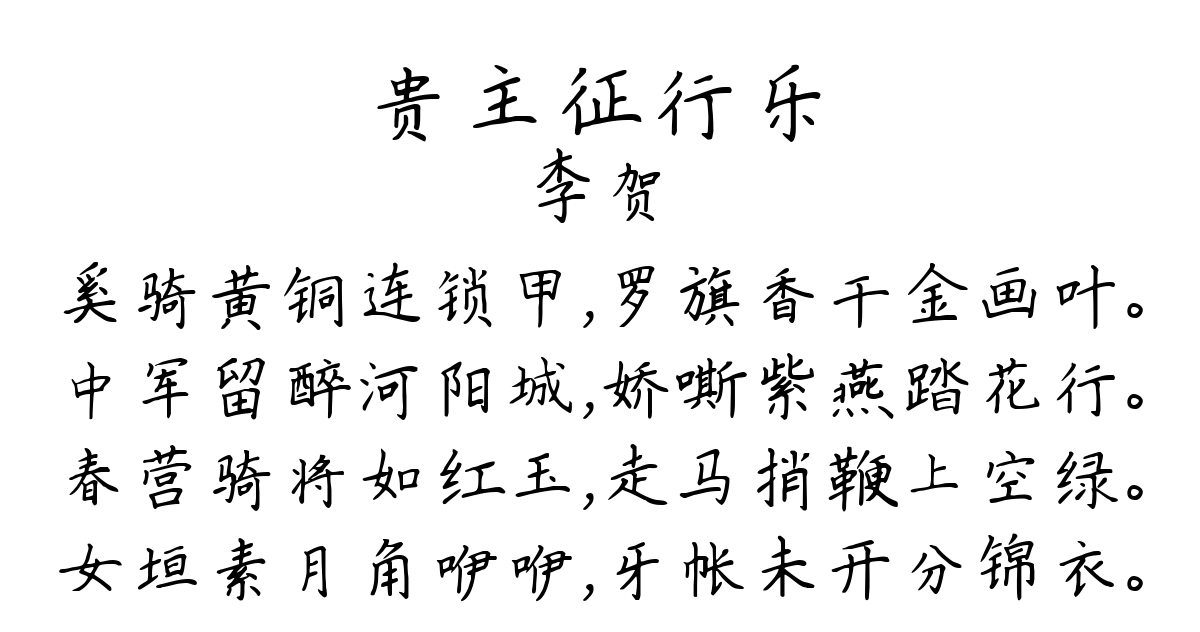 贵主征行乐
李贺
奚骑黄铜连锁甲,罗旗香干金画叶。
中军留醉河阳城,娇嘶紫燕踏花行。
春营骑将如红玉,走马捎鞭上空绿。
女垣素月角咿咿,牙帐未开分锦衣。